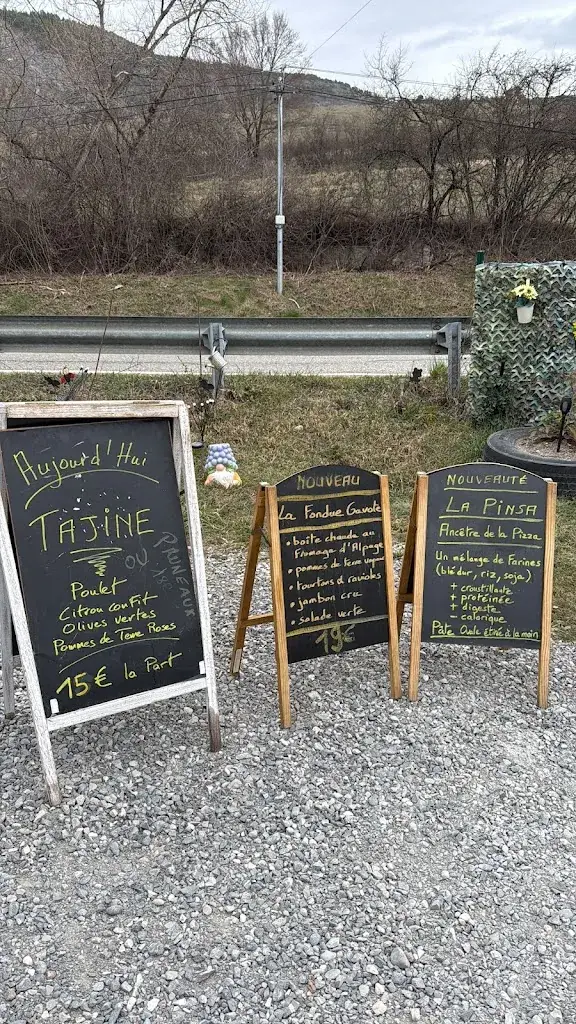 Aujourd'Hui
TAJINE
OU PRUNEAUX
Poulet
Citron confit
Olives vertes
Pommes de Terre Roses
15€ la Part
NOUVEAU
La Fondue Gavote
• boîte chaude au
fromage d'Alpage
• pommes de terre
• tourtons et ravioles
• jambon cru
• salade verte
19€
NOUVEAUTÉ
LA PINSA
Ancêtre de la Pizza
Un mélange de Farines
(blé dur, riz, soja)
+ croustillante
+ protéinée
+ digeste
- calorique
Pâte Ovale étiré à la main